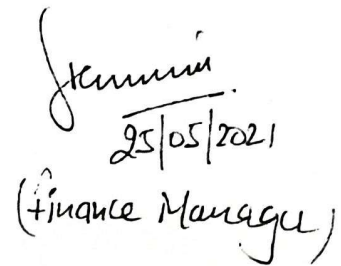 25/05/2021
(Finance Manager)